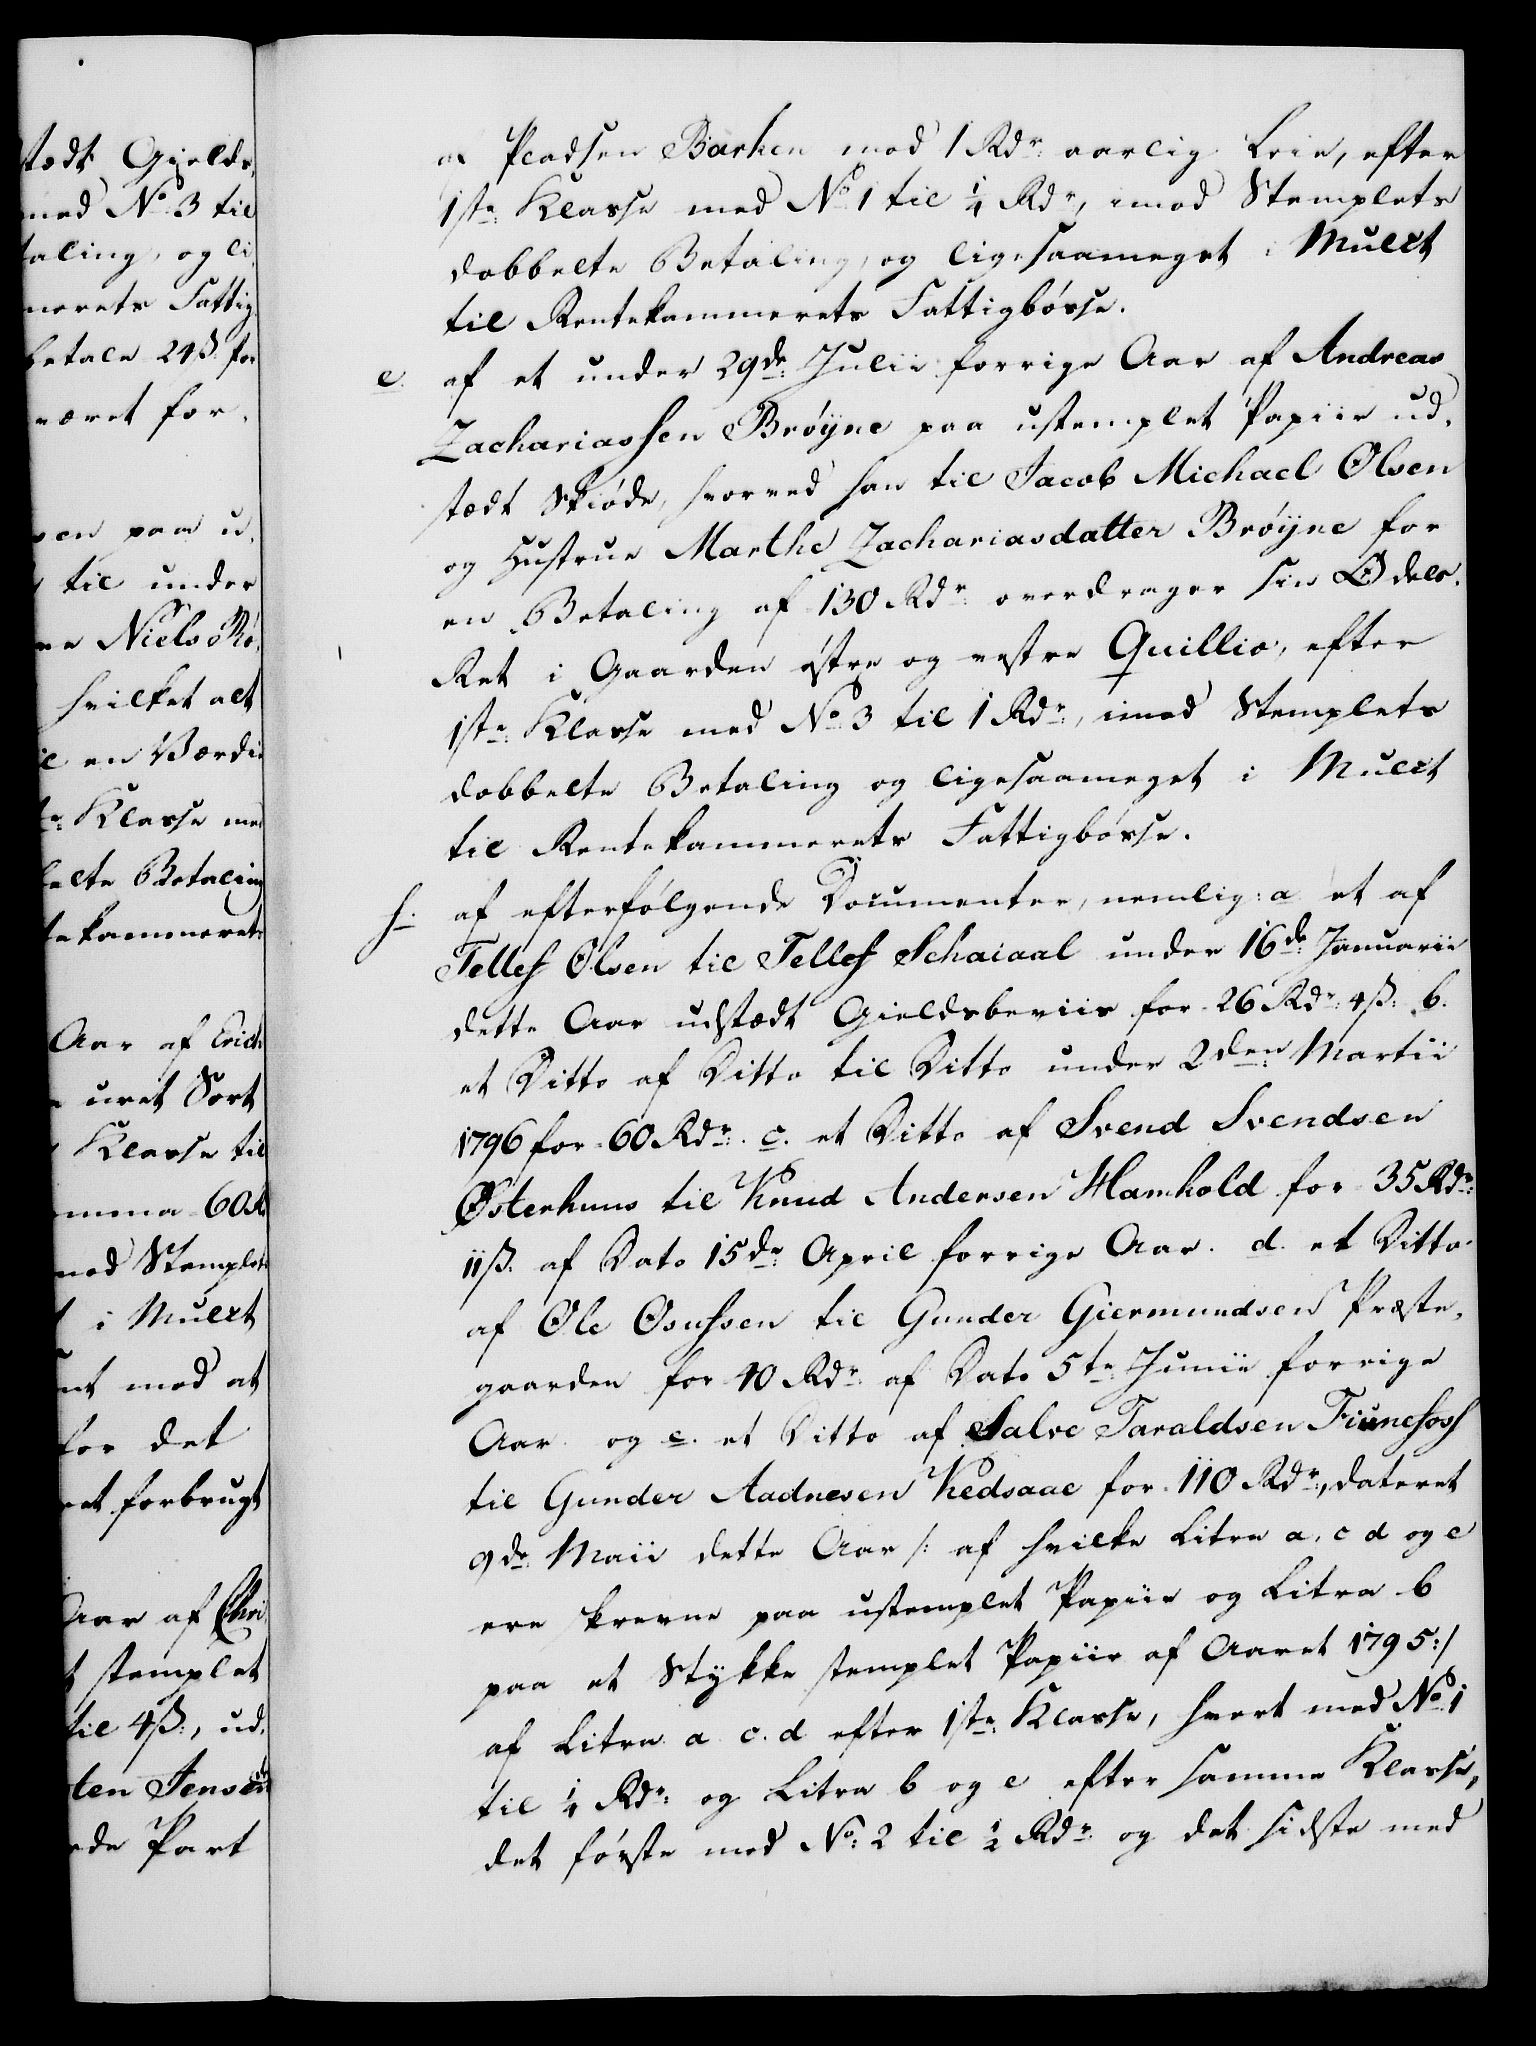 tædt Gields-
med No 3 til
taling, og li-
merets Fattig-
betale 24ß for
været for-
sen paa u-
til under
Niels Rö-
hvilket alt
en Værdi
Klasse med
belte Betaling
tekammerets
Aar af Erich
uret Sort
Klasse til
60
mod Stemplets
i Mulct
mod at
for det
et forbrugt
Aar af Chri
t stemplet
til 4ß:, ud-
ten Jensen
de Part
af Pladsen Barken mod 1 Rdr: aarlig Leie, efter
1ste: Klasse med No 1 til ¼ Rdr, imod Stemplets
dobbelte Betaling, og ligesaameget i Mulct
til Rentekammerets Fattigbösse.
e. af et under 29de: Julii forrige Aar af Andreas
Zachariassen Bröyne paa ustemplet Papiir ud-
stædt Skiöde, hvorved han til Jacob Michael Olsen
og Hustrue Marthe Zachariasdatter Bröyne for
en Betaling af 130 Rdr: overdrager sin Odels-
Ret i Gaarden östre og vestre Quillio, efter
1ste: Klasse med No 3 til 1 Rdr:, imod Stemplets
dobbelte Betaling og ligesaameget i Mulct
til Rentekammerets Fattigbösse.
f. af efterfölgende Documenter, nemlig: a et af
Tellef Olsen til Tellef Schaiaal under 16de: Januarii
dette Aar udstædt Gieldsbeviis for 26 Rdr: 4ß: b.
et Ditto af Ditto til Ditto under 2den: Martii
1796 for 60 Rdr:. c. et Ditto af Svend Svendsen
Österhuus til Knud Andersen Hamkold for 35 Rdr:
11ß. af Dato 15de: April forrige Aar. d. et Ditto
af Ole Osufsen til Gunder Giermundsen Præste-
gaarden for 40 Rdr: af Dato 5te: Junii forrige
Aar og e. et Ditto af Salve Taraldsen Fiunefoss
til Gunder Aadnesen Kedsaae for 110 Rdr:, dateret
9de: Maii dette Aar /: af hvilke Litra a, c d og e
ere skrevne paa ustemplet Papiir og Litra b
paa et Stykke stemplet Papiir af Aaret 1795 :/
af Litra a c. d efter 1ste: Klasse, hvert med No 1
til ¼ Rdr: og Litra b og e efter samme Klasse,
det förste med No: 2 til ½ Rdr: og det sidste med